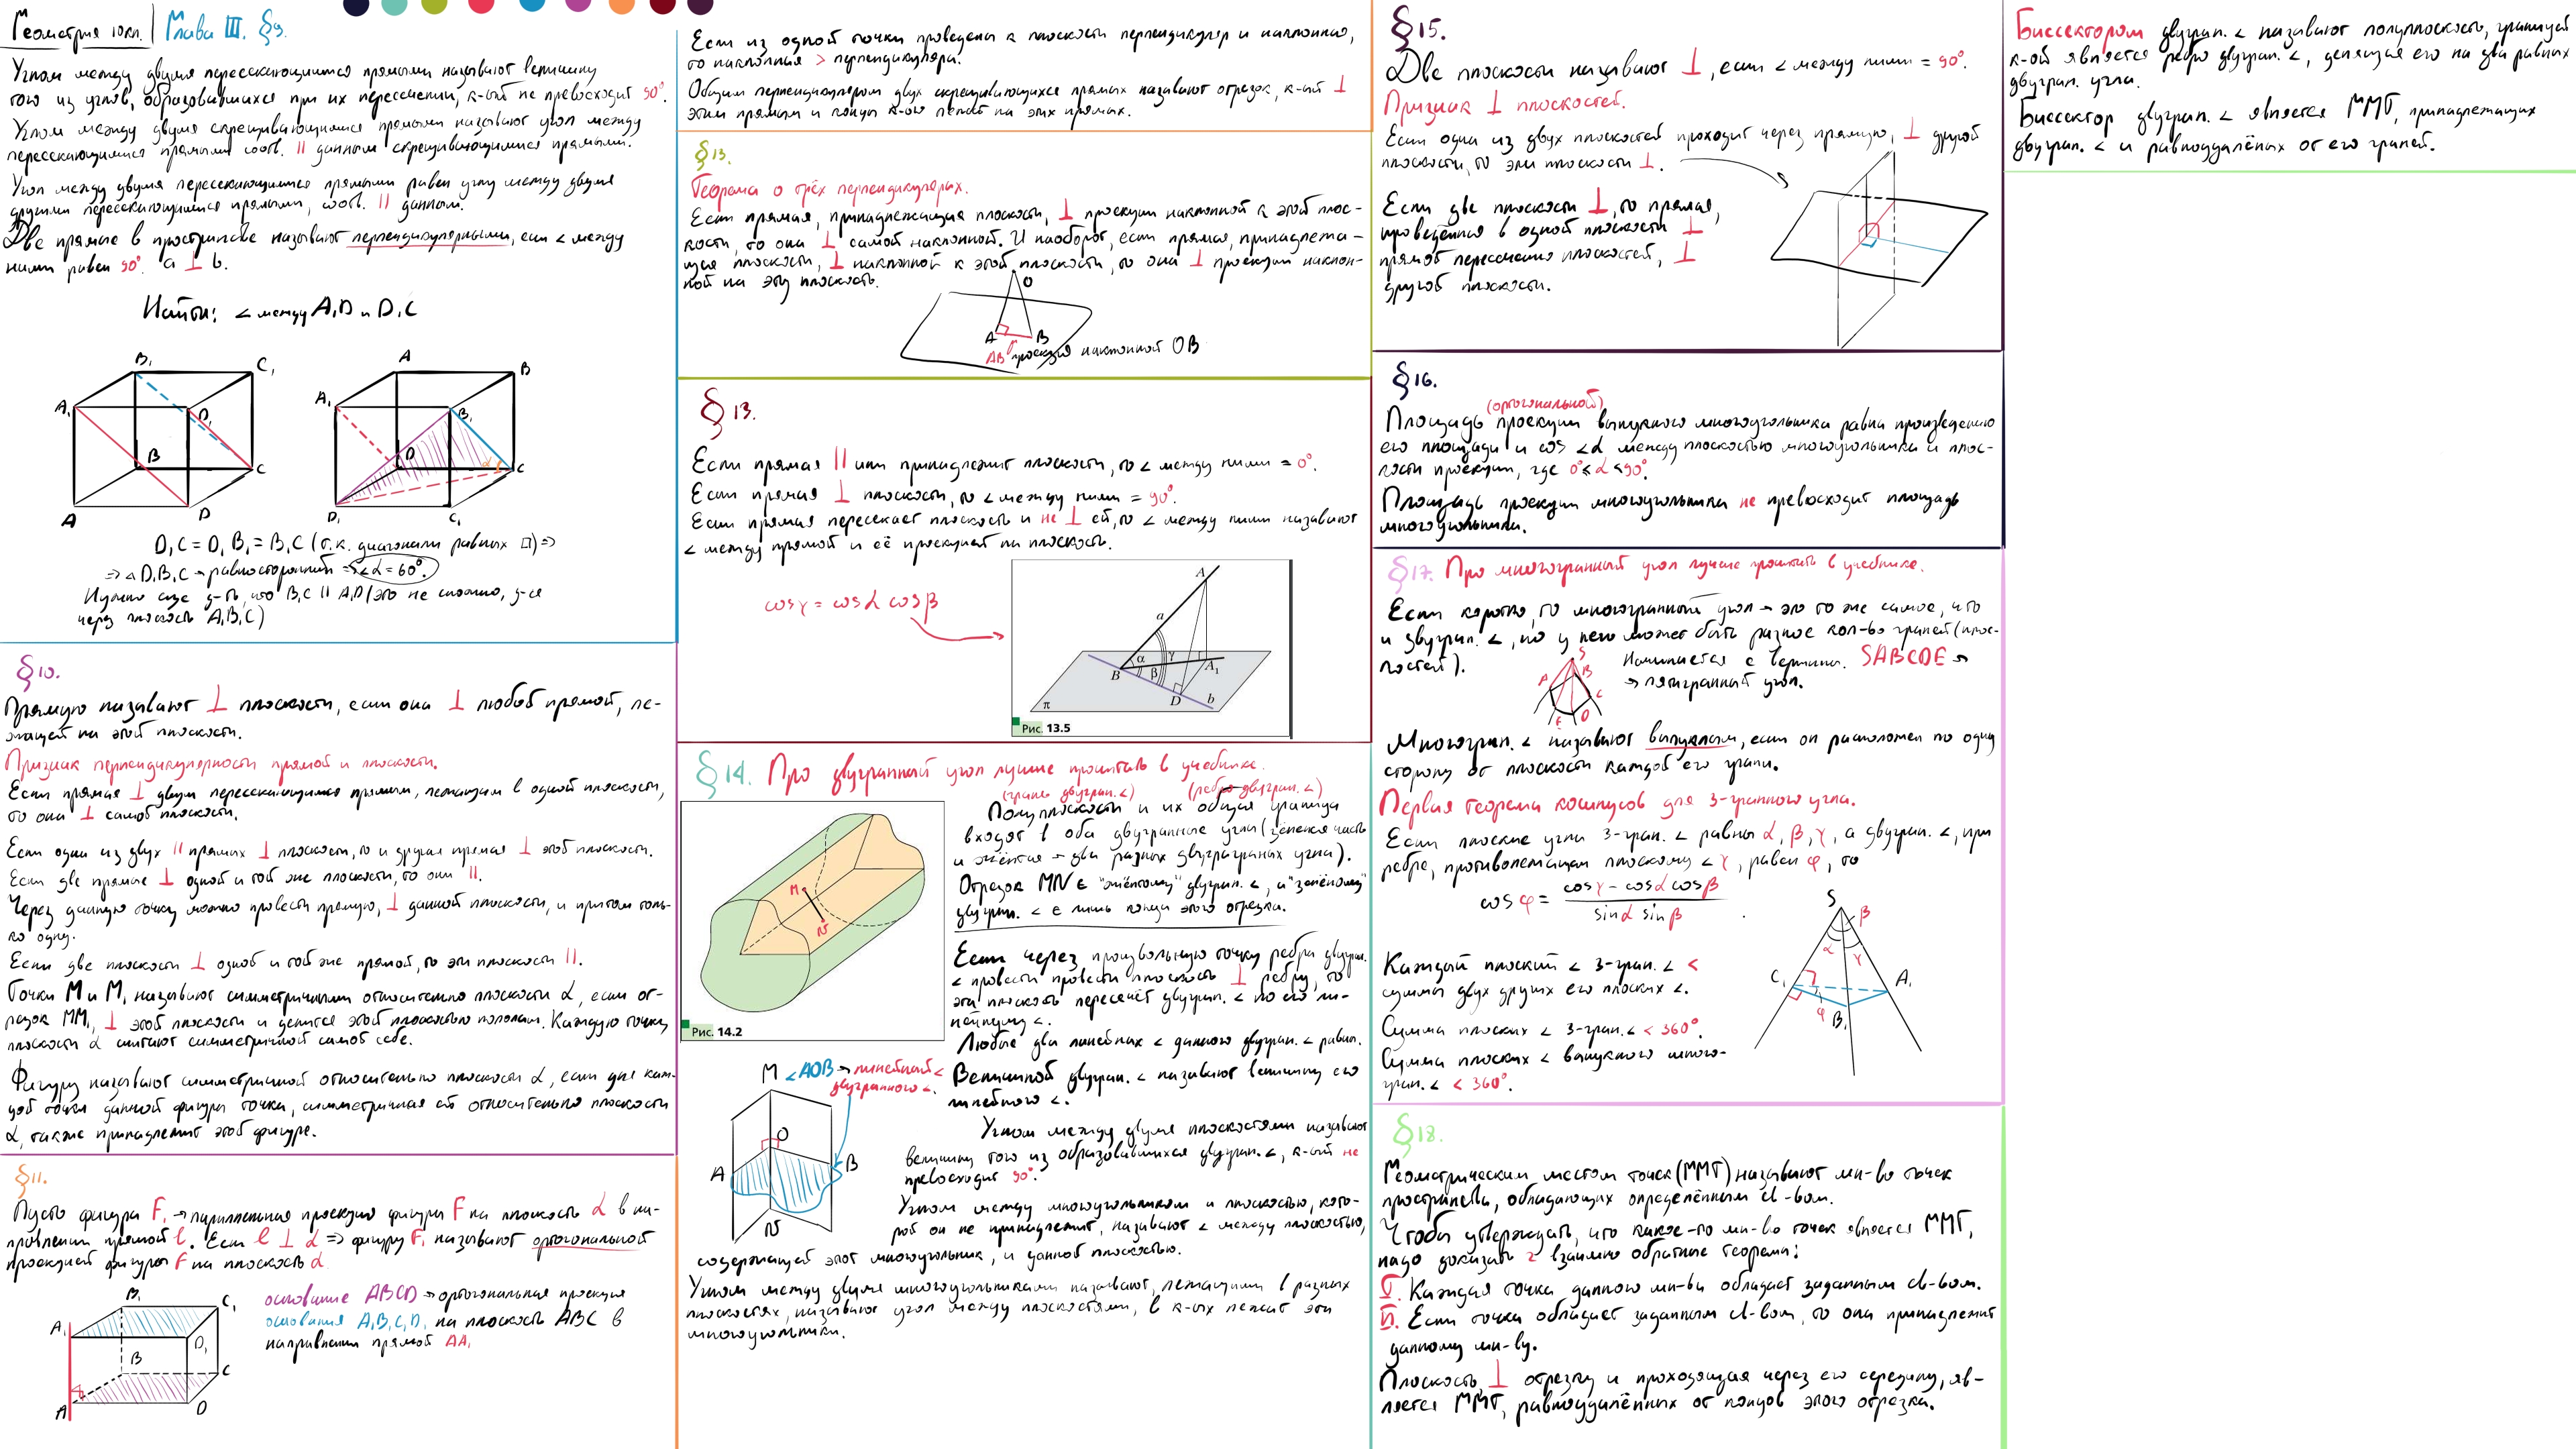 Геометрия 10кл. | Глава III. §9.
Углом между двумя пересекающимися прямыми называют величину
того из углов, образовавшихся при их пересечении, к-ый не превосходит 90°.
Углом между двумя скрещивающимися прямыми называют угол между
пересекающимися прямыми, соотв. || данным скрещивающимся прямым.
Угол между двумя пересекающимися прямыми равен углу между двумя
другими пересекающимися прямыми, соотв. || данным.
Две прямые в пространстве называют перпендикулярными, если ∠ между
ними равен 90°. a ⊥ b.
Найти: ∠ между A₁D и D₁C
B₁ C₁ A₁ D₁ B C A D
A B A₁ B₁ D C D₁ C₁ α
D₁C = D₁B₁ = B₁C (т.к. диагонали равных □) =>
=> △D₁B₁C - равносторонний => ∠α = 60°.
Нужно ещё д-ть, что B₁C || A₁D (это не сложно, д-ся
через плоскость A₁B₁C)
§10.
Прямую называют ⊥ плоскости, если она ⊥ любой прямой, ле-
жащей на этой плоскости.
Признак перпендикулярности прямой и плоскости.
Если прямая ⊥ двум пересекающимся прямым, лежащим в одной плоскости,
то она ⊥ самой плоскости.
Если одна из двух || прямых ⊥ плоскости, то и другая прямая ⊥ этой плоскости.
Если две прямые ⊥ одной и той же плоскости, то они ||.
Через данную точку можно провести прямую, ⊥ данной плоскости, и притом толь-
ко одну.
Если две плоскости ⊥ одной и той же прямой, то эти плоскости ||.
Точки M и M₁ называют симметричными относительно плоскости α, если от-
резок MM₁ ⊥ этой плоскости и делится этой плоскостью пополам. Каждую точку
плоскости α считают симметричной самой себе.
Фигуру называют симметричной относительно плоскости α, если для каж-
дой точки данной фигуры точка, симметричная ей относительно плоскости
α, также принадлежит этой фигуре.
§11.
Пусть фигура F₁ → параллельная проекция фигуры F на плоскость α в на-
правлении прямой l. Если l ⊥ α => фигуру F₁ называют ортогональной
проекцией фигуры F на плоскость α
B₁ C₁ A₁ D₁ B C A D
основание ABCD → ортогональная проекция
основания A₁B₁C₁D₁ на плоскость ABC в
направлении прямой AA₁
Если из одной точки проведены к плоскости перпендикуляр и наклонная,
то наклонная > перпендикуляра.
Общим перпендикуляром двух скрещивающихся прямых называют отрезок, к-ый ⊥
этим прямым и концы к-ого лежат на этих прямых.
§13.
Теорема о трёх перпендикулярах.
Если прямая, принадлежащая плоскости, ⊥ проекции наклонной к этой плос-
кости, то она ⊥ самой наклонной. И наоборот, если прямая, принадлежа-
щая плоскости, ⊥ наклонной к этой плоскости, то она ⊥ проекции наклон-
ной на эту плоскость.
O
A B
AB проекция наклонной OB
§13.
Если прямая || или принадлежит плоскости, то ∠ между ними = 0°.
Если прямая ⊥ плоскости, то ∠ между ними = 90°.
Если прямая пересекает плоскость и не ⊥ ей, то ∠ между ними называют
∠ между прямой и её проекцией на плоскость.
cosγ = cosα cosβ
A a α γ B β A₁ D b π
Рис. 13.5
§14. Про двугранный угол лучше прочитать в учебнике.
(грань двугран.∠) (ребро двугран.∠)
Полуплоскости и их общая граница
входят в оба двугранные углы (зелёная часть
и жёлтая → два разных двуграгранных угла).
Отрезок MN ∈ "жёлтому" двугран. ∠, а "зелёному"
двугран. ∠ ∈ лишь концы этого отрезка.
M N
Рис. 14.2
Если через произвольную точку ребра двугран.
∠ провести провести плоскость ⊥ ребру, то
эта плоскость пересечёт двугран. ∠ по его ли-
нейному ∠.
Любые два линейных ∠ данного двугран. ∠ равны.
Величиной двугран. ∠ называют величину его
линейного ∠.
M ∠AOB → линейный ∠
двугранного ∠.
O A B N
Углом между двумя плоскостями называют
величину того из образовавшихся двугран. ∠, к-ый не
превосходит 90°.
Углом между многоугольником и плоскостью, кото-
рой он не принадлежит, называют ∠ между плоскостью,
содержащей этот многоугольник, и данной плоскостью.
Углом между двумя многоугольниками называют, лежащими в разных
плоскостях, называют угол между плоскостями, в к-ых лежат эти
многоугольники.
§15.
Две плоскости называют ⊥, если ∠ между ними = 90°.
Признак ⊥ плоскостей.
Если одна из двух плоскостей проходит через прямую, ⊥ другой
плоскости, то эти плоскости ⊥.
Если две плоскости ⊥, то прямая,
проведённая в одной плоскости ⊥
прямой пересечения плоскостей, ⊥
другой плоскости.
§16.
(ортогональной)
Площадь проекции выпуклого многоугольника равна произведению
его площади и cos ∠α между плоскостью многоугольника и плос-
кости проекции, где 0° ≤ α ≤ 90°.
Площадь проекции многоугольника не превосходит площадь
многоугольника.
§17. Про многогранный угол лучше прочитать в учебнике.
Если коротко, то многогранный угол → это то же самое, что
и двугран. ∠, но у него может быть разное кол-во граней (плос-
костей).
S A B C D E
Начинается с вершины. SABCDE →
→ пятигранный угол.
Многогран. ∠ называют выпуклым, если он расположен по одну
сторону от плоскости каждой его грани.
Первая теорема косинусов для 3-гранного угла.
Если плоские углы 3-гран. ∠ равны α, β, γ, а двугран. ∠, при
ребре, противолежащем плоскому ∠ γ, равен φ, то
cos φ = (cosγ - cosα cosβ) / (sinα sinβ)
Каждый плоский ∠ 3-гран. ∠ <
суммы двух других его плоских ∠.
Сумма плоских ∠ 3-гран. ∠ < 360°.
Сумма плоских ∠ выпуклого много-
гран. ∠ < 360°.
S β α γ C₁ A₁ φ B₁
§18.
Геометрическим местом точек (ГМТ) называют мн-во точек
пространства, обладающих определённым св-вом.
Чтобы утверждать, что какое-то мн-во точек является ГМТ,
надо доказать 2 взаимно обратные теоремы:
I. Каждая точка данного мн-ва обладает заданным св-вом.
II. Если точка обладает заданным св-вом, то она принадлежит
данному мн-ву.
Плоскость ⊥ отрезку и проходящая через его середину, яв-
ляется ГМТ, равноудалённых от концов этого отрезка.
Биссектором двугран. ∠ называют полуплоскость, границей
к-ой является ребро двугран. ∠, делящая его на два равных
двугран. угла.
Биссектор двугран. ∠ является ГМТ, принадлежащих
двугран. ∠ и равноудалёных от его граней.